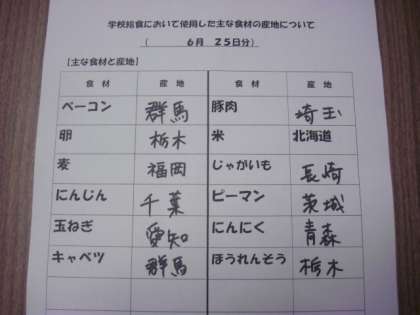 学校給食において使用した主な食材の産地について
（ 6月 25日分）
【主な食材と産地】
食 材 産 地 食 材 産 地
ベーコン 群馬 豚肉 埼玉
卵 栃木 米 北海道
麦 福岡 じゃがいも 長崎
にんじん 千葉 ピーマン 茨城
玉ねぎ 愛知 にんにく 青森
キャベツ 群馬 ほうれんそう 栃木